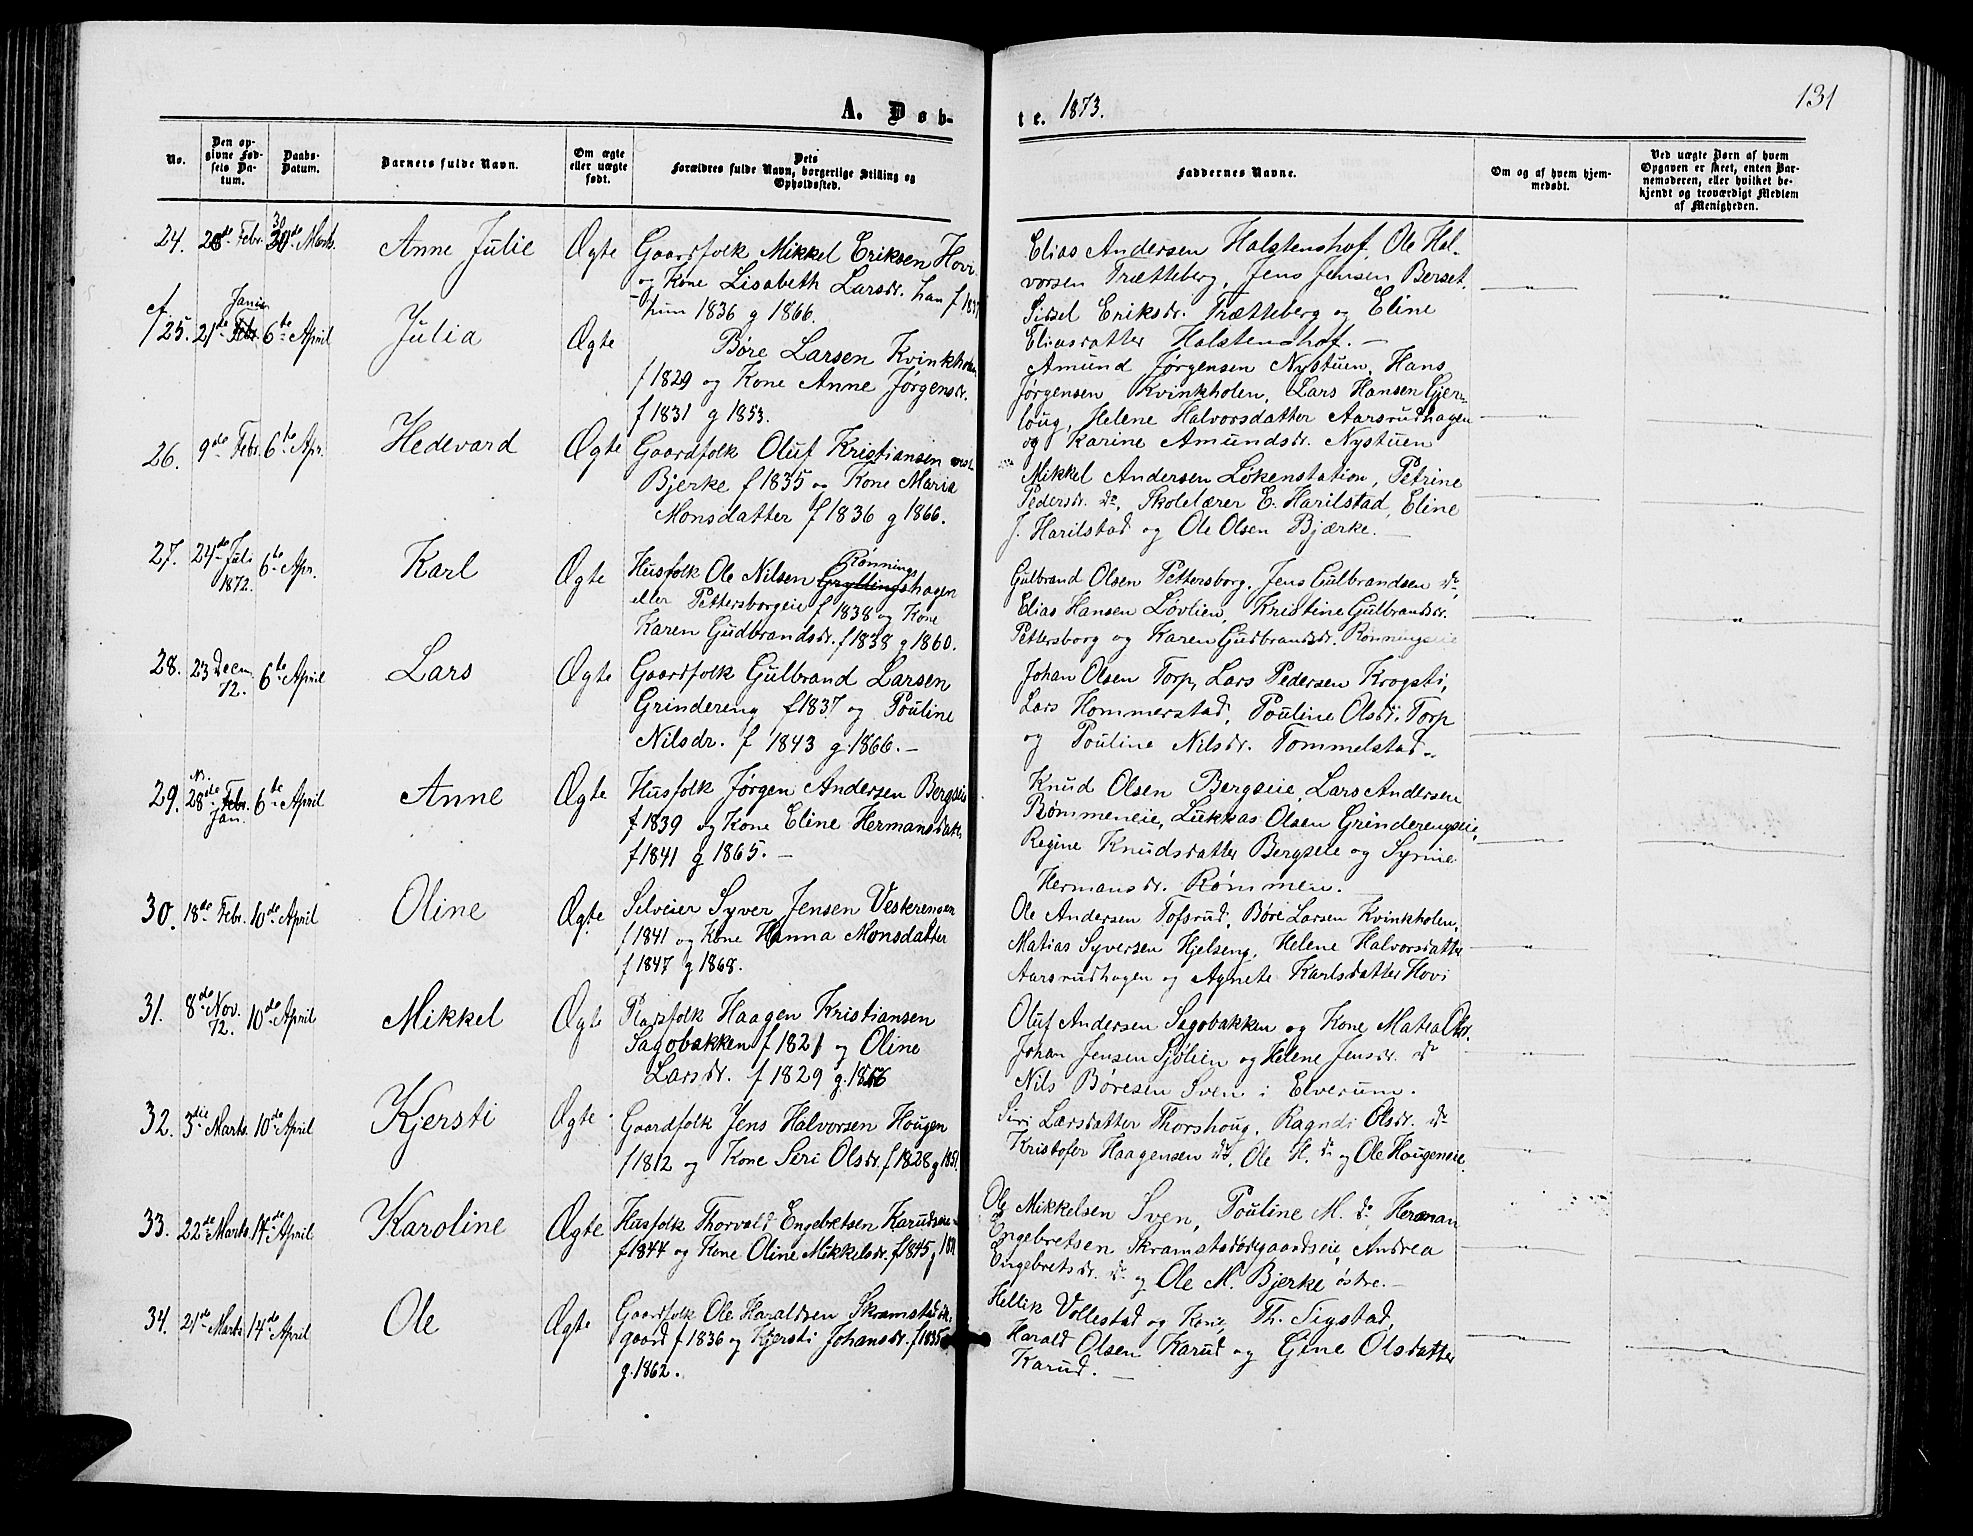 131
A. Døb-
te. 1873.
No.
Den op-
givne Fød-
sels Da-
tum.
Daabs-
Datum.
Barnets fulde Navn.
Om ægte
eller uægte
født.
Dets
Forældres fulde Navn, borgerlige Stilling og
Opholdssted.
Faddernes Navne.
Om og af hvem hjem-
medøbt.
Ved uægte Børn af hvem
Opgaven er skeet, enten Bar-
nemoderen, eller hvilket be-
kjendt og troværdigt Medlem
af Menigheden.
24. 28de Febr. 30de Marts. Anne Julie Ægte
Gaardfolk Mikkel Eriksen Hovi
og Kone Lisabeth Larsdr. han f 1837
hun 1836 g 1866.
Elias Andersen Halstenshof, Ole Hal-
vorsen Trætteberg, Jens Jensen Berset,
Sissel Eriksdr. Trætteberg og Eline
Eliasdatter Halstenshof. —
25. 21de Febr. Janir 6te April Julia Ægte
Børe Larsen Kvinkholen
f 1829 og Kone Anne Jørgensdr.
f 1831 g 1853.
Amund Jørgensen Nystuen, Hans
Jørgensen Kvinkholen, Lars Hansen Gjer-
loug, Helene Halvorsdatter Aarsrudhagen
og Karine Amundsdr. Nystuen
26. 9de Febr. 6te Apr. Hedevard Ægte
Gaardfolk Oluf Kristiansen vest
Bjerke f 1835 og Kone Maria
Monsdatter f 1836 g 1866.
Mikkel Andersen Løkenstation, Petrine
Pedersdr. do, Skolelærer E. Harilstad, Eline
J. Harilstad og Ole Olsen Bjærke. —
27. 24de Juli 1872. 6te Apr. Karl Ægte
Rønnings
Husfolk Ole Nilsen Gryllingshagen
eller Pettersborgeie f 1838 og Kone
Karen Gudbrandsdr. f 1838 g 1860.
Gulbrand Olsen Pettersborg, Jens Gulbrandsen do,
Elias Hansen Løvlien, Kristine Gulbrandsdr.
Pettersborg og Karen Gudbrandsdr. Rønningseie
28. 23 Decm. 72. 6te April Lars Ægte
Gaardfolk Gulbrand Larsen
Grindereng f 1837 og Pouline
Nilsdr. f 1843 g 1866. —
Johan Olsen Torp, Lars Pedersen Krogsti,
Lars Hommerstad, Pouline Olsdr. Torp
og Pouline Nilsdr. Tommelstad.
29. 28de Febr. Jan. 6te April Anne Ægte
Husfolk Jørgen Andersen Bergseie
f 1839 og Kone Eline Hermansdatr.
f 1841 g 1865. —
Knud Olsen Bergseie, Lars Andersen
Rømmeneie, Lukkas Olsen Grinderengseie,
Regine Knudsdatter Bergseie og Syrine
Hermansdr. Rømmen. —
30. 18de Febr. 10de April Oline Ægte
Selveier Syver Jensen Veskrengen
f 1841 og Kone Hanna Monsdatter
f 1847 g 1868.
Ole Andersen Tofsrud, Børe Larsen Kvinkholen,
Matias Syversen Hjelseng, Helene Halvorsdatter
Aarsrudhagen og Agnete Karlsdatter Hovi
31. 8de Nov. 72. 10de April Mikkel Ægte
Pladsfolk Haagen Kristiansen
Sagobakken f 1821 og Oline
Larsdr. f 1829 g. 1856
Oluf Andersen Sagobakken og Kone Matea Olsr.
Johan Jensen Sjølien og Helene Jensdr. do
Nils Børesen Sven i Elverum.
32. 3die Marts. 10de April Kjersti Ægte
Gaardfolk Jens Halvorsen Hougen
f 1812 og Kone Seri Olsdr. f 1828 g 1851.
Siri Larsdatter Thorshoug, Ragndi Olsdr. do
Kristofer Haagensen do, Ole H. do og Ole Hougeneie.
33. 22de Marts 14de April Karoline Ægte
Husfolk Thorvald Engebretsen Karudseie
f 1844 og Kone Oline Mikkelsdr. f 1845 g
Ole Mikkelsen Sven, Pouline M. do, Herman
Engebretsen Skramstadødegaardseie, Andrea
Engebretsdr. do og Ole M. Bjerke østre. —
34. 21de Marts 14de April Ole Ægte
Gaardfolk Ole Haraldsen Skramstadøde-
gaard f 1836 og Kjersti Johansdr. f 1835
g. 1862.
Hellik Vollestad og Kone, Th. Sigstad,
Harald Olsen Karud og Gine Olsdatter
Karud. —